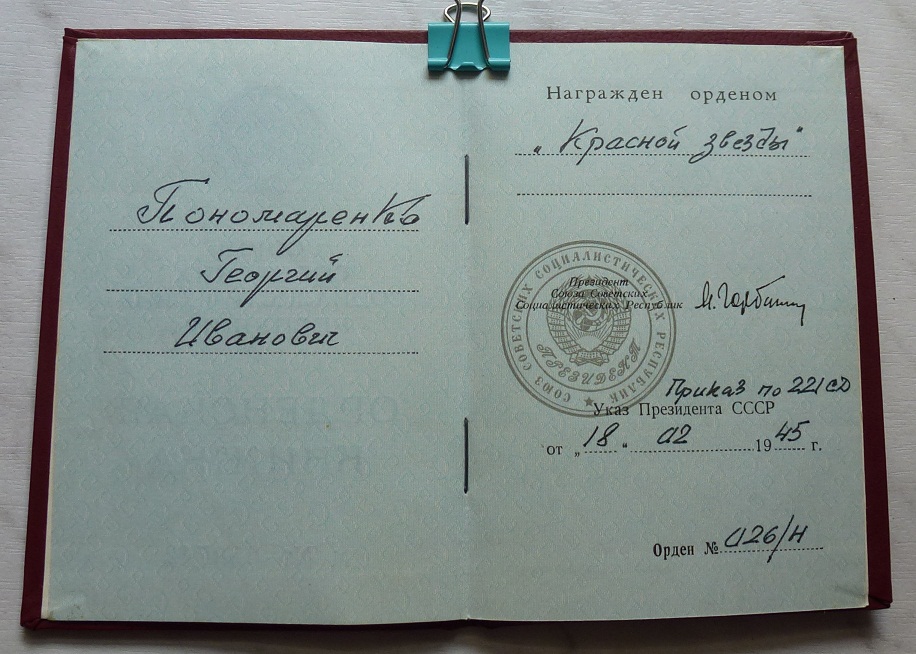 Пономаренко
Георгий
Иванович
Награжден орденом
„Красной звезды"
Президент
Союза Советских
Социалистических Республик
М. Горбачев
СОЮЗ СОВЕТСКИХ СОЦИАЛИСТИЧЕСКИХ РЕСПУБЛИК
ПРЕЗИДЕНТ
Приказ по 221 СД
Указ Президента СССР
от „18" 02 1945 г.
Орден № 026/н